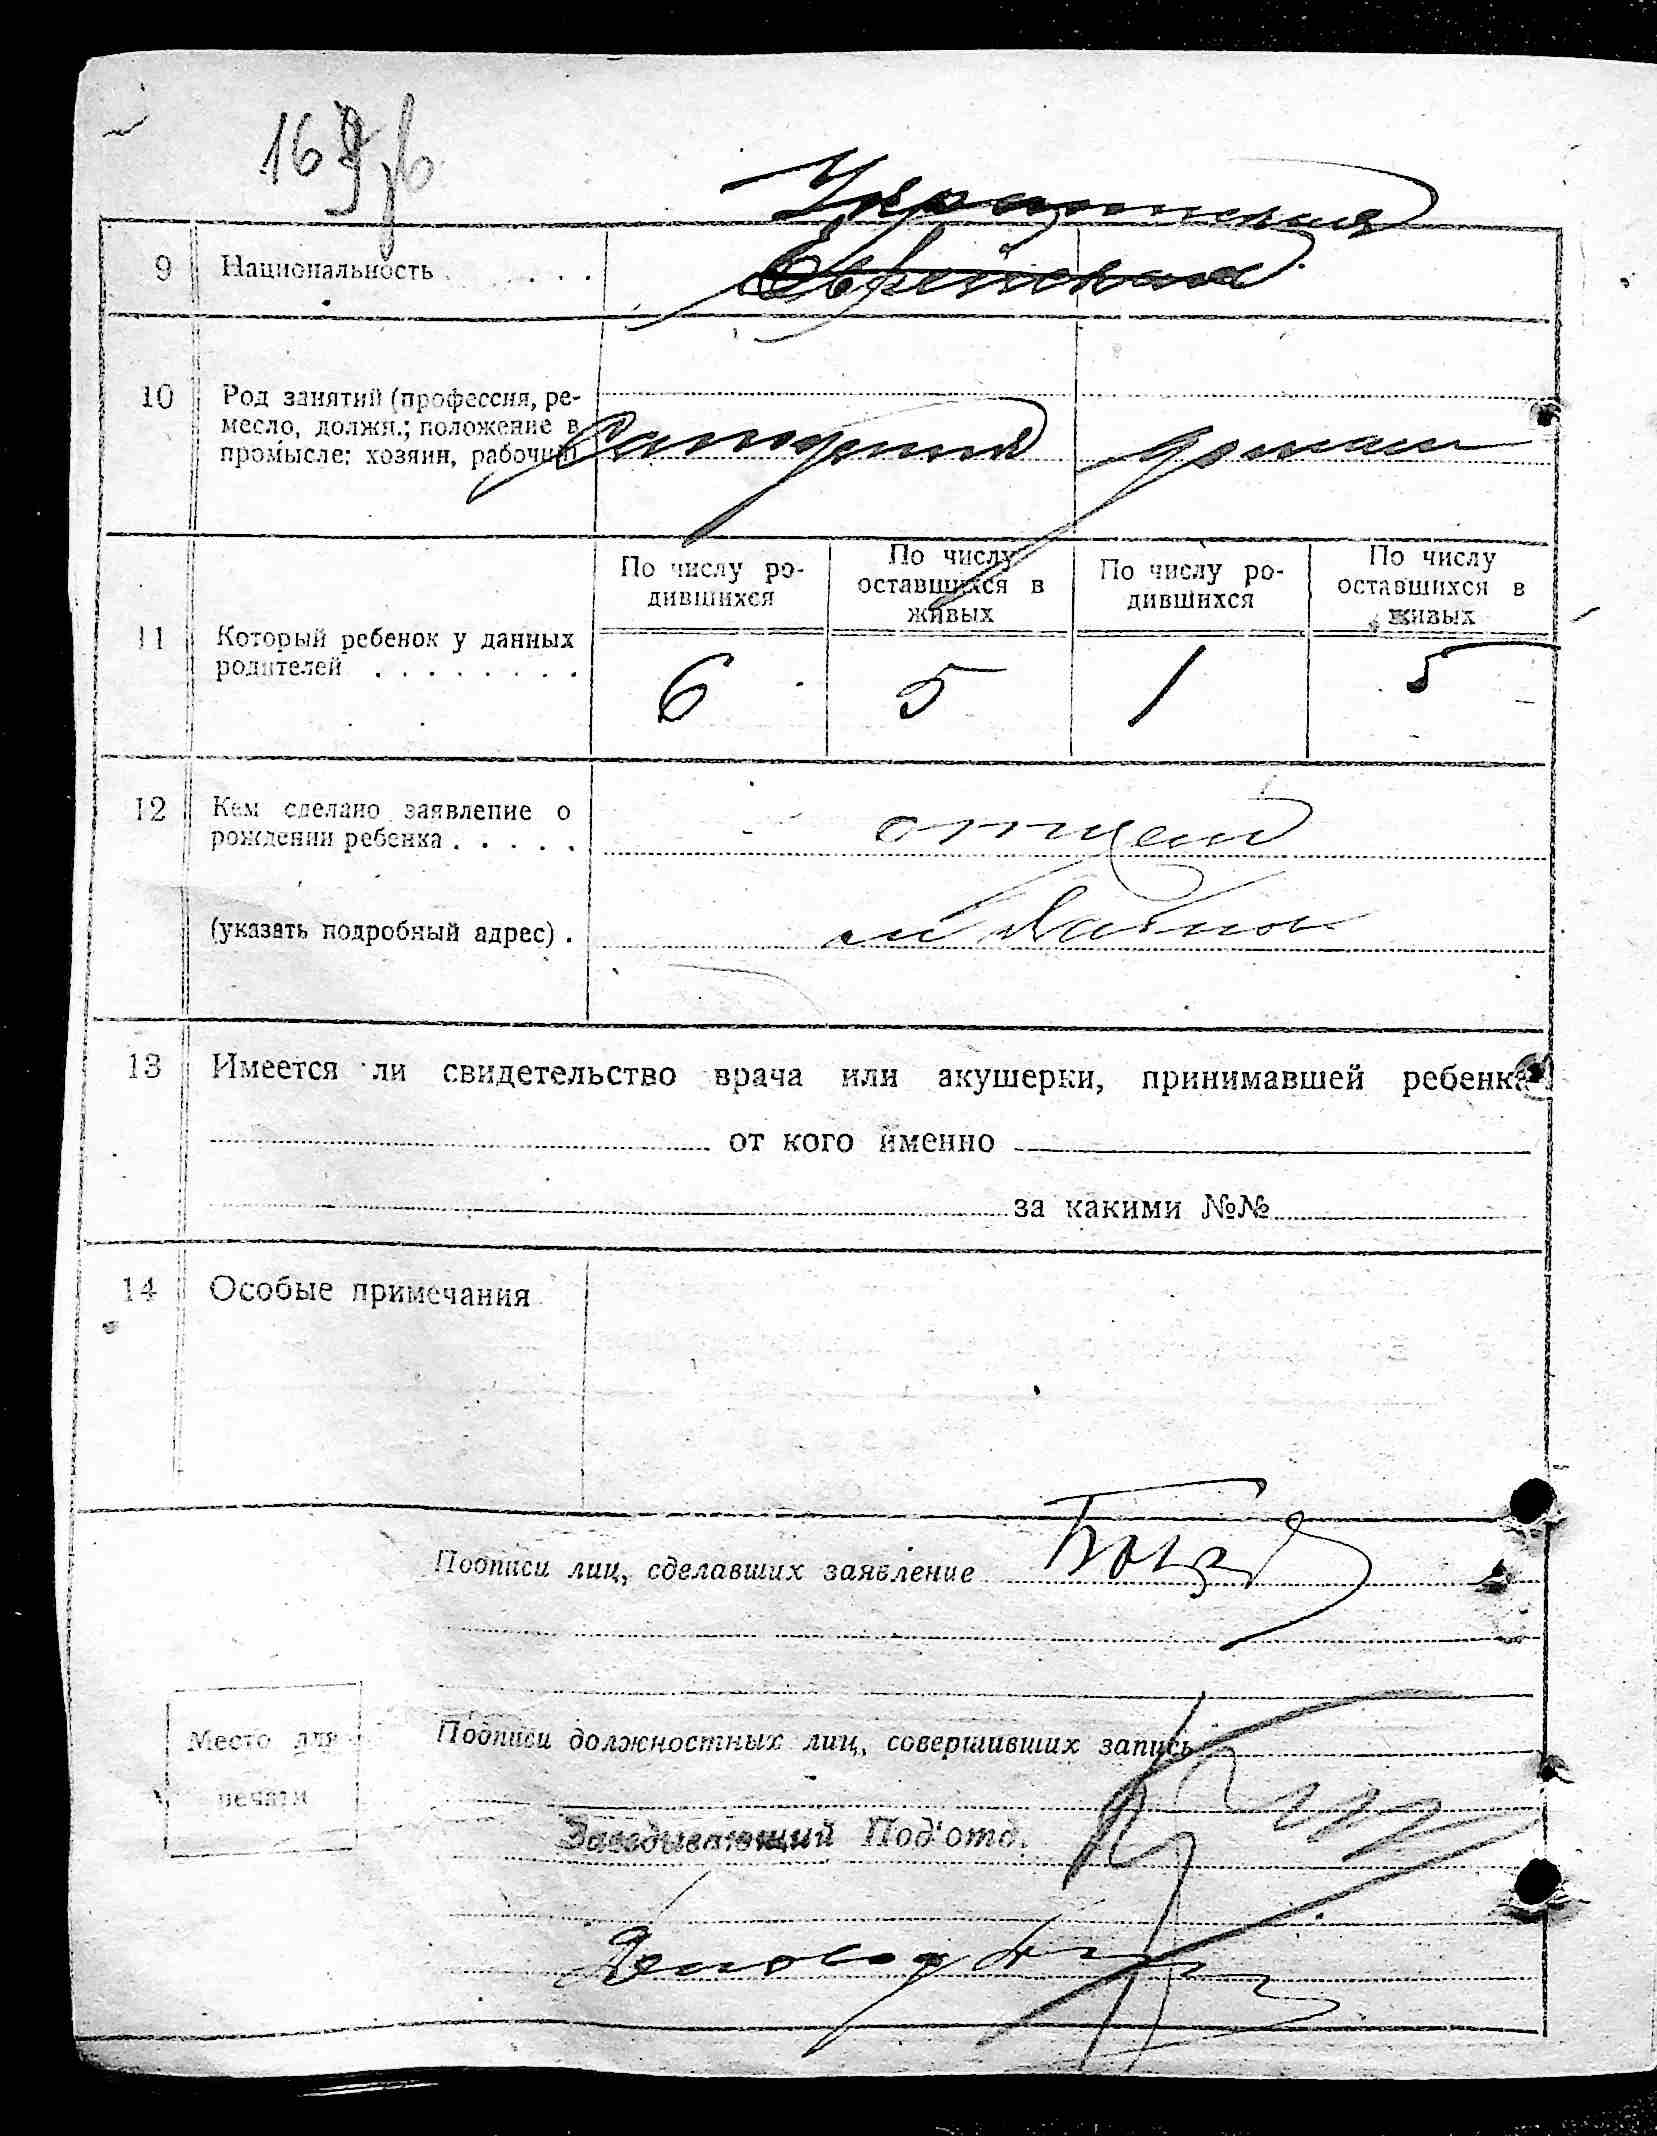 169
Украинская
9 Национальность . . . . .
Еврейская
10 Род занятий (профессия, ре-
месло, должн.; положение в
промысле: хозяин, рабочий)
Сапожник
По числу ро-
дившихся
По числу
оставшихся в
живых
По числу ро-
дившихся
По числу
оставшихся в
живых
11 Который ребенок у данных
родителей . . . . . . . .
6 5 1 5
12 Кем сделано заявление о
рождении ребенка . . . . .
отцем
(указать подробный адрес) .
м
13 Имеется ли свидетельство врача или акушерки, принимавшей ребенка
от кого именно
за какими №№
14 Особые примечания
Подписи лиц, сделавших заявление
Место для
печати
Подписи должностных лиц, совершивших запись
Заведывающий Под'отд.
Делопр